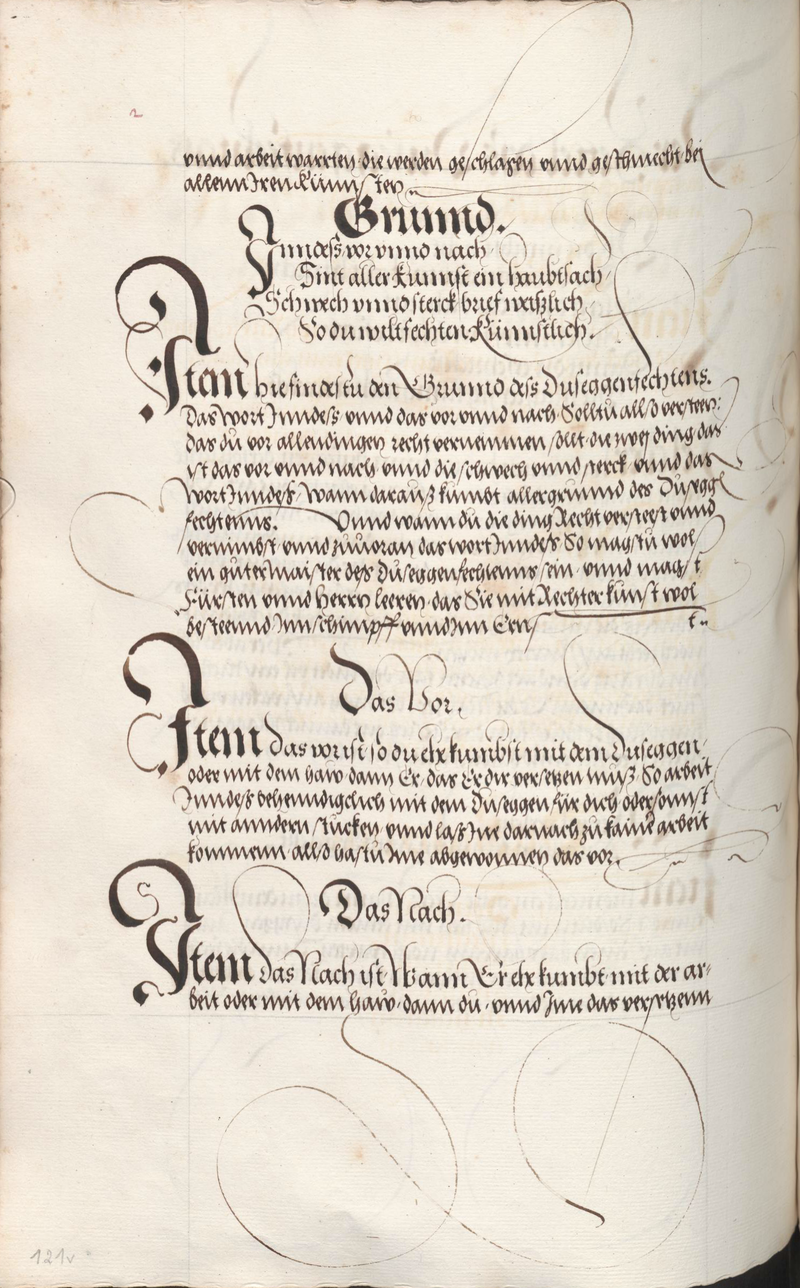 vnnd arbeit warrten die werden geschlagen vnnd geschwecht bei
allenn Iren künnsten
Grunnd.
Inndess vor vnnd nach
Sint aller kunnst ein haubtsach
Schwech vnnd sterck brief weißlich
So du wilt fechten künnstlich.
Item hie findestu den Grunnd dess Duseggenfechtens.
Das wort Inndeß vnnd das vor vnnd nach Solltu allso versteen:
das du vor allen dingen recht vernemmen sollt die zwej ding das
ist das vor vnnd nach vnnd die schwech vnnd sterck vnnd das
Wort Inndeß Wann darauß kumbt aller grunnd des Dusegg
fechtenns. Vnnd wann du die ding Recht versteest vnnd
vernimbst vnnd zuuoran das wort Inndeß So magstu wol
ein guter maister des Duseggenfechtenns sein vnnd magst
Fürsten vnnd Herrn leeren das Sie mit Rechter kunst wol
besteennd Inn schimpff vnnd Inn Ernst
Das Vor.
Item das vor ist so du ehe kumbst mit dem Duseggen
oder mit dem haw dann Er das Er dir versetzen muß So arbeit
Inndeß behenndigclich mit dem Duseggen für dich oder sonnst
mit anndern stucken vnnd laß Ine darnach zu kainer arbeit
kommenn allso hastu Ime abgewonnen das vor.
Das Nach.
Item das Nach ist Wann Er ehe kumbt mit der ar-
beit oder mit dem haw dann du vnnd Inne das versetzenn
121v